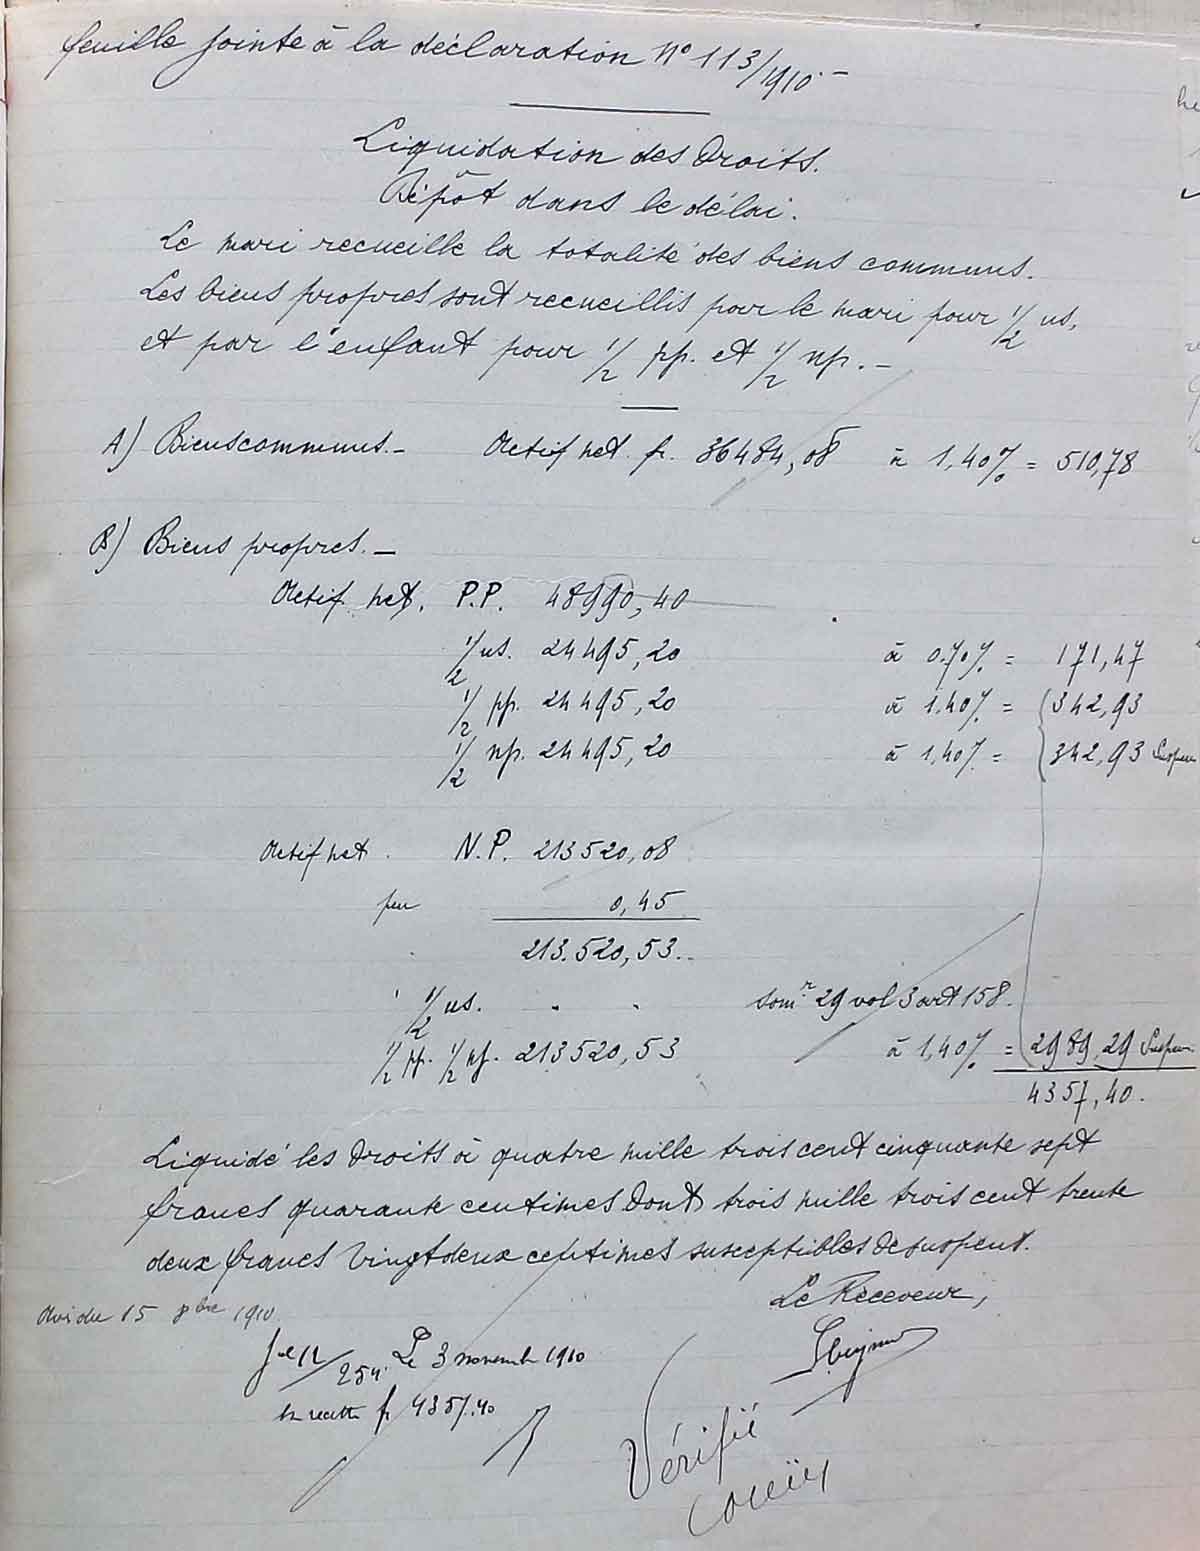 feuille jointe à la déclaration N° 113/1910 -
Liquidation des Droits.
Dépôt dans le délai.
Le mari recueille la totalité des biens communs.
Les biens propres sont recueillis par le mari pour 1/2 us,
et par l'enfant pour 1/2 pp. et 1/2 np. -
A) Biens communs. - Actif net. fr. 36484,08 à 1,40% = 510,78
B) Biens propres. -
Actif net. P.P. 48990,40
1/2 us. 24495,20 à 0.70% = 171,47
1/2 pp. 24495,20 à 1.40% = 342,93
1/2 np. 24495,20 à 1.40% = 342,93 Suspens
Actif net. N.P. 213520,08
0,45
213.520,53.
1/2 us. " " Somr 29 vol 3 art 158.
1/2 pp. 1/2 np. 213520,53 à 1,40% = 2989,29 Suspens
4357,40.
Liquidé les Droits à quatre mille trois cent cinquante sept
francs quarante centimes dont trois mille trois cent trente
deux francs vingt deux centimes susceptibles de suspens.
Le Receveur,
Avis du 15 8bre 1910
254. Le 3 novembre 1910
En recette fr 4357.40
Vérifié